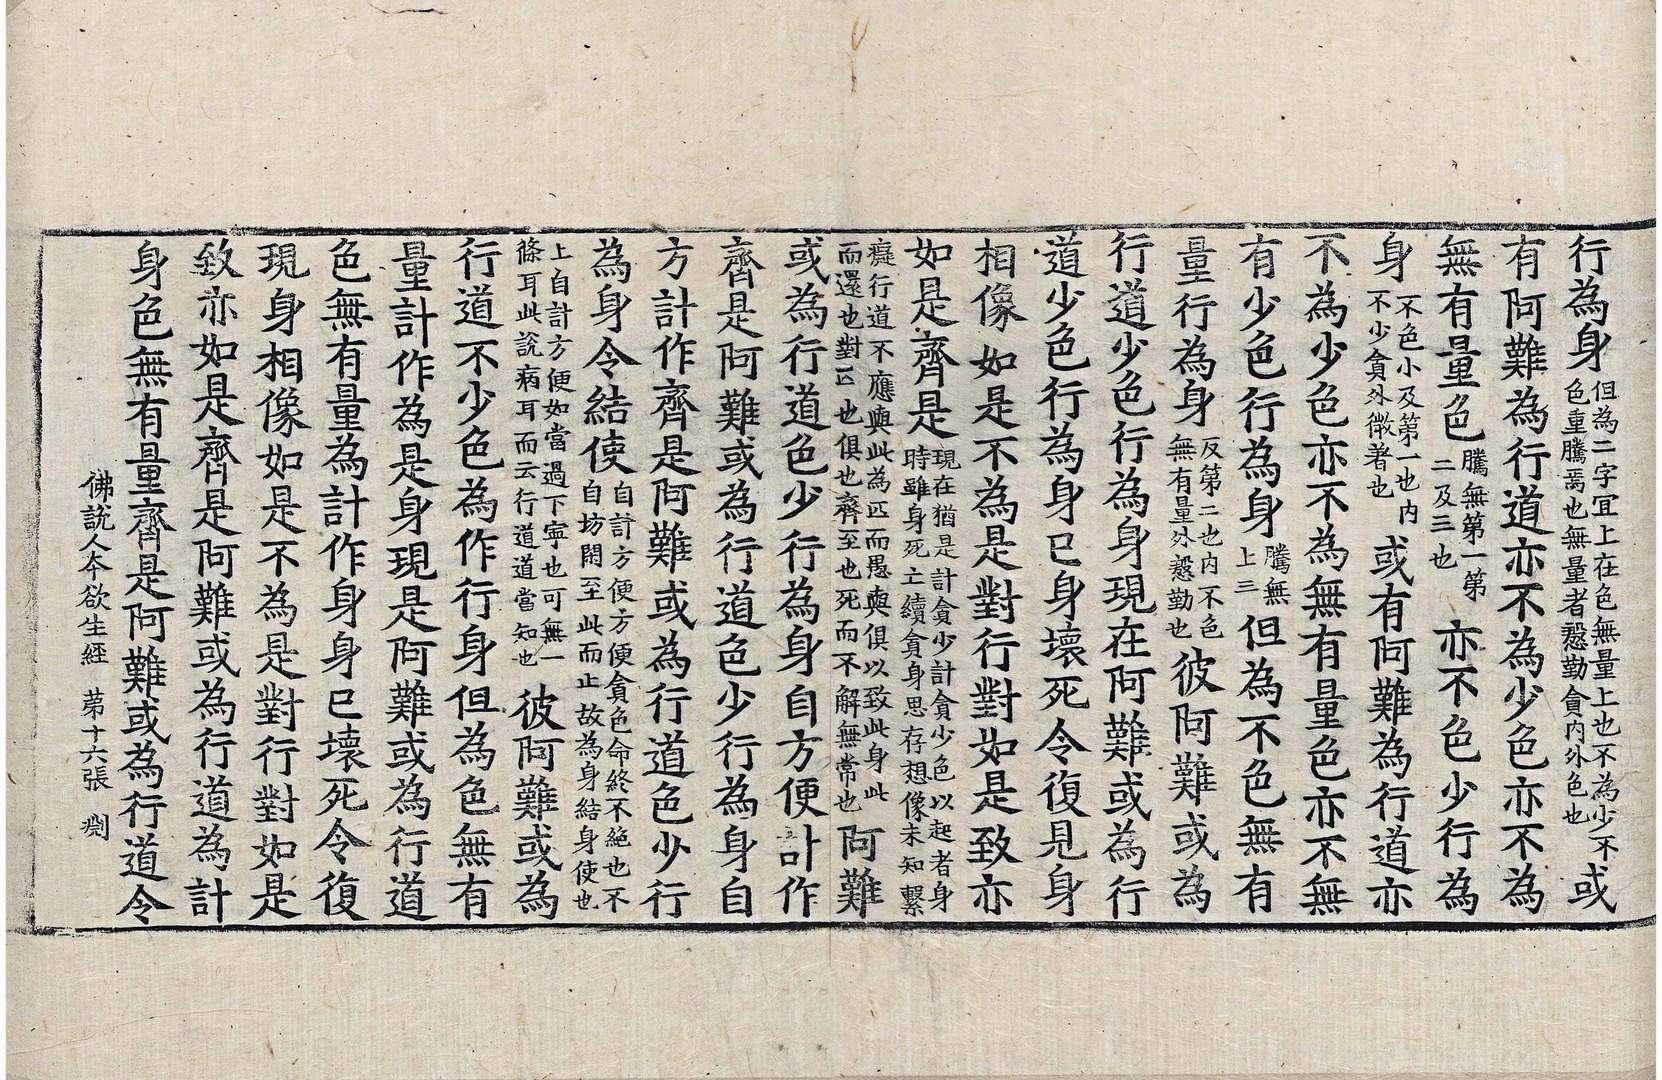 行為身但為二字冝上在色無量上也不為少不色重騰焉也無量者慇勤貪內外色也或
有阿難為行道亦不為少色亦不為
無有量色騰無第一第二及三也亦不色少行為
身不色小及第一也內不少貪外微著也或有阿難為行道亦
不為少色亦不為無有量色亦不無
有少色行為身騰無上三但為不色無有
量行為身反第二也內不色無有量外慇勤也彼阿難或為
行道少色行為身現在阿難或為行
道少色行為身已身壞死令復見身
相像如是不為是對行對如是致亦
如是齊是現在猶是計貪少計貪少色以起者身時雖身死亡續貪身思存想像未知繫
癡行道不應與此為匹而愚與俱以致此身此而還也對匹也俱也齊至也死而不解無常也阿難
或為行道色少行為身自方便計作
齊是阿難或為行道色少行為身自
方計作齊是阿難或為行道色少行
為身令結使自計方便方便貪色命終不絕也不自坊閇至此而止故為身結身使也
上自計方便如當過下寧也可無一條耳此說病耳而云行道道當知也彼阿難或為
行道不少色為作行身但為色無有
量計作為是身現是阿難或為行道
色無有量為計作身身已壞死令復
現身相像如是不為是對行對如是
致亦如是齊是阿難或為行道為計
身色無有量齊是阿難或為行道令
佛說人本欲生經 苐十六張